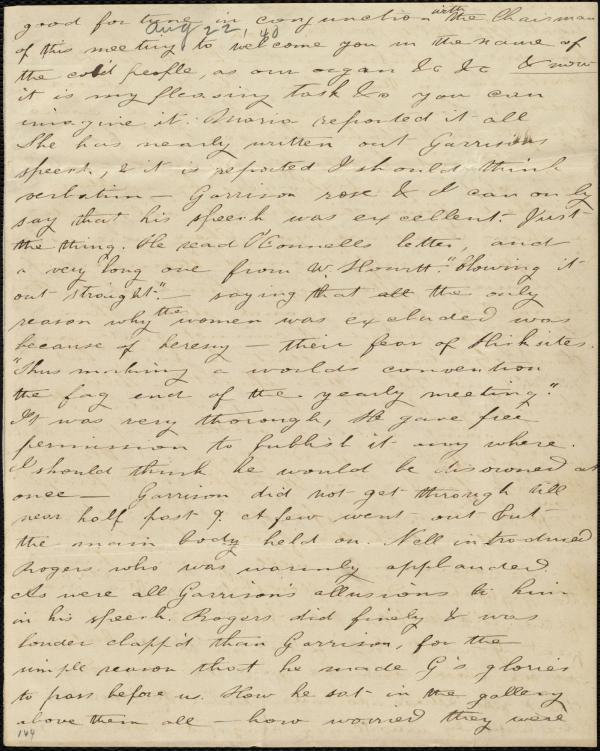 good fortune in conjunction with the Chairman
Aug 22, 40
of this meeting to welcome you in the name of
the cold people, as our organ &c &c & now
it is my pleasing task &c you can
imagine it. Maria reported it all
She has nearly written out Garrisons
speech, & it is reported I should think
verbatim — Garrison rose & I can only
say that his speech was excellent. Just
the thing. He read O'Connells letter, and
a very long one from W. Howitt. "blowing it
out straight". — saying that all the only
reason why the women was excluded was
because of heresy — their fear of Hicksites.
"Thus making a worlds convention
the fag end of the yearly meeting."
It was very thorough, He gave free
permission to publish it any where.
I should think he would be disowned at
once — Garrison did not get through till
near half past 9. A few went out but
the main body held on. Nell introduced
Rogers who was warmly applauded
As were all Garrison's allusions to him
in his speech. Rogers did finely & was
louder clapp'd than Garrison, for the
simple reason that he made G's glories
to pass before us. How he sat in the gallery
above them all — how worried they were
144